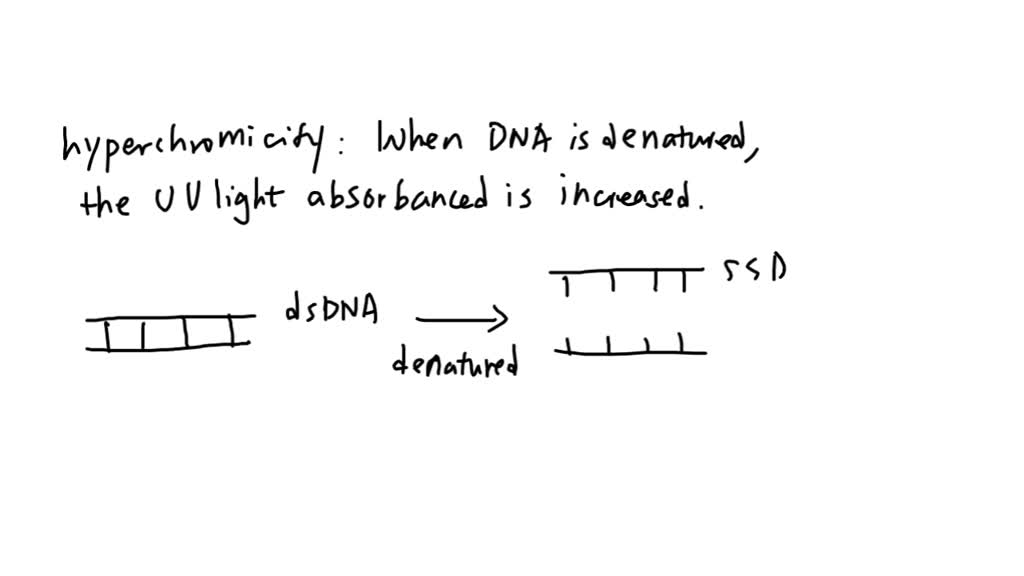 hyperchromicity: When DNA is denatured,
the UV light absorbanced is increased.
dsDNA
denatured
ssD